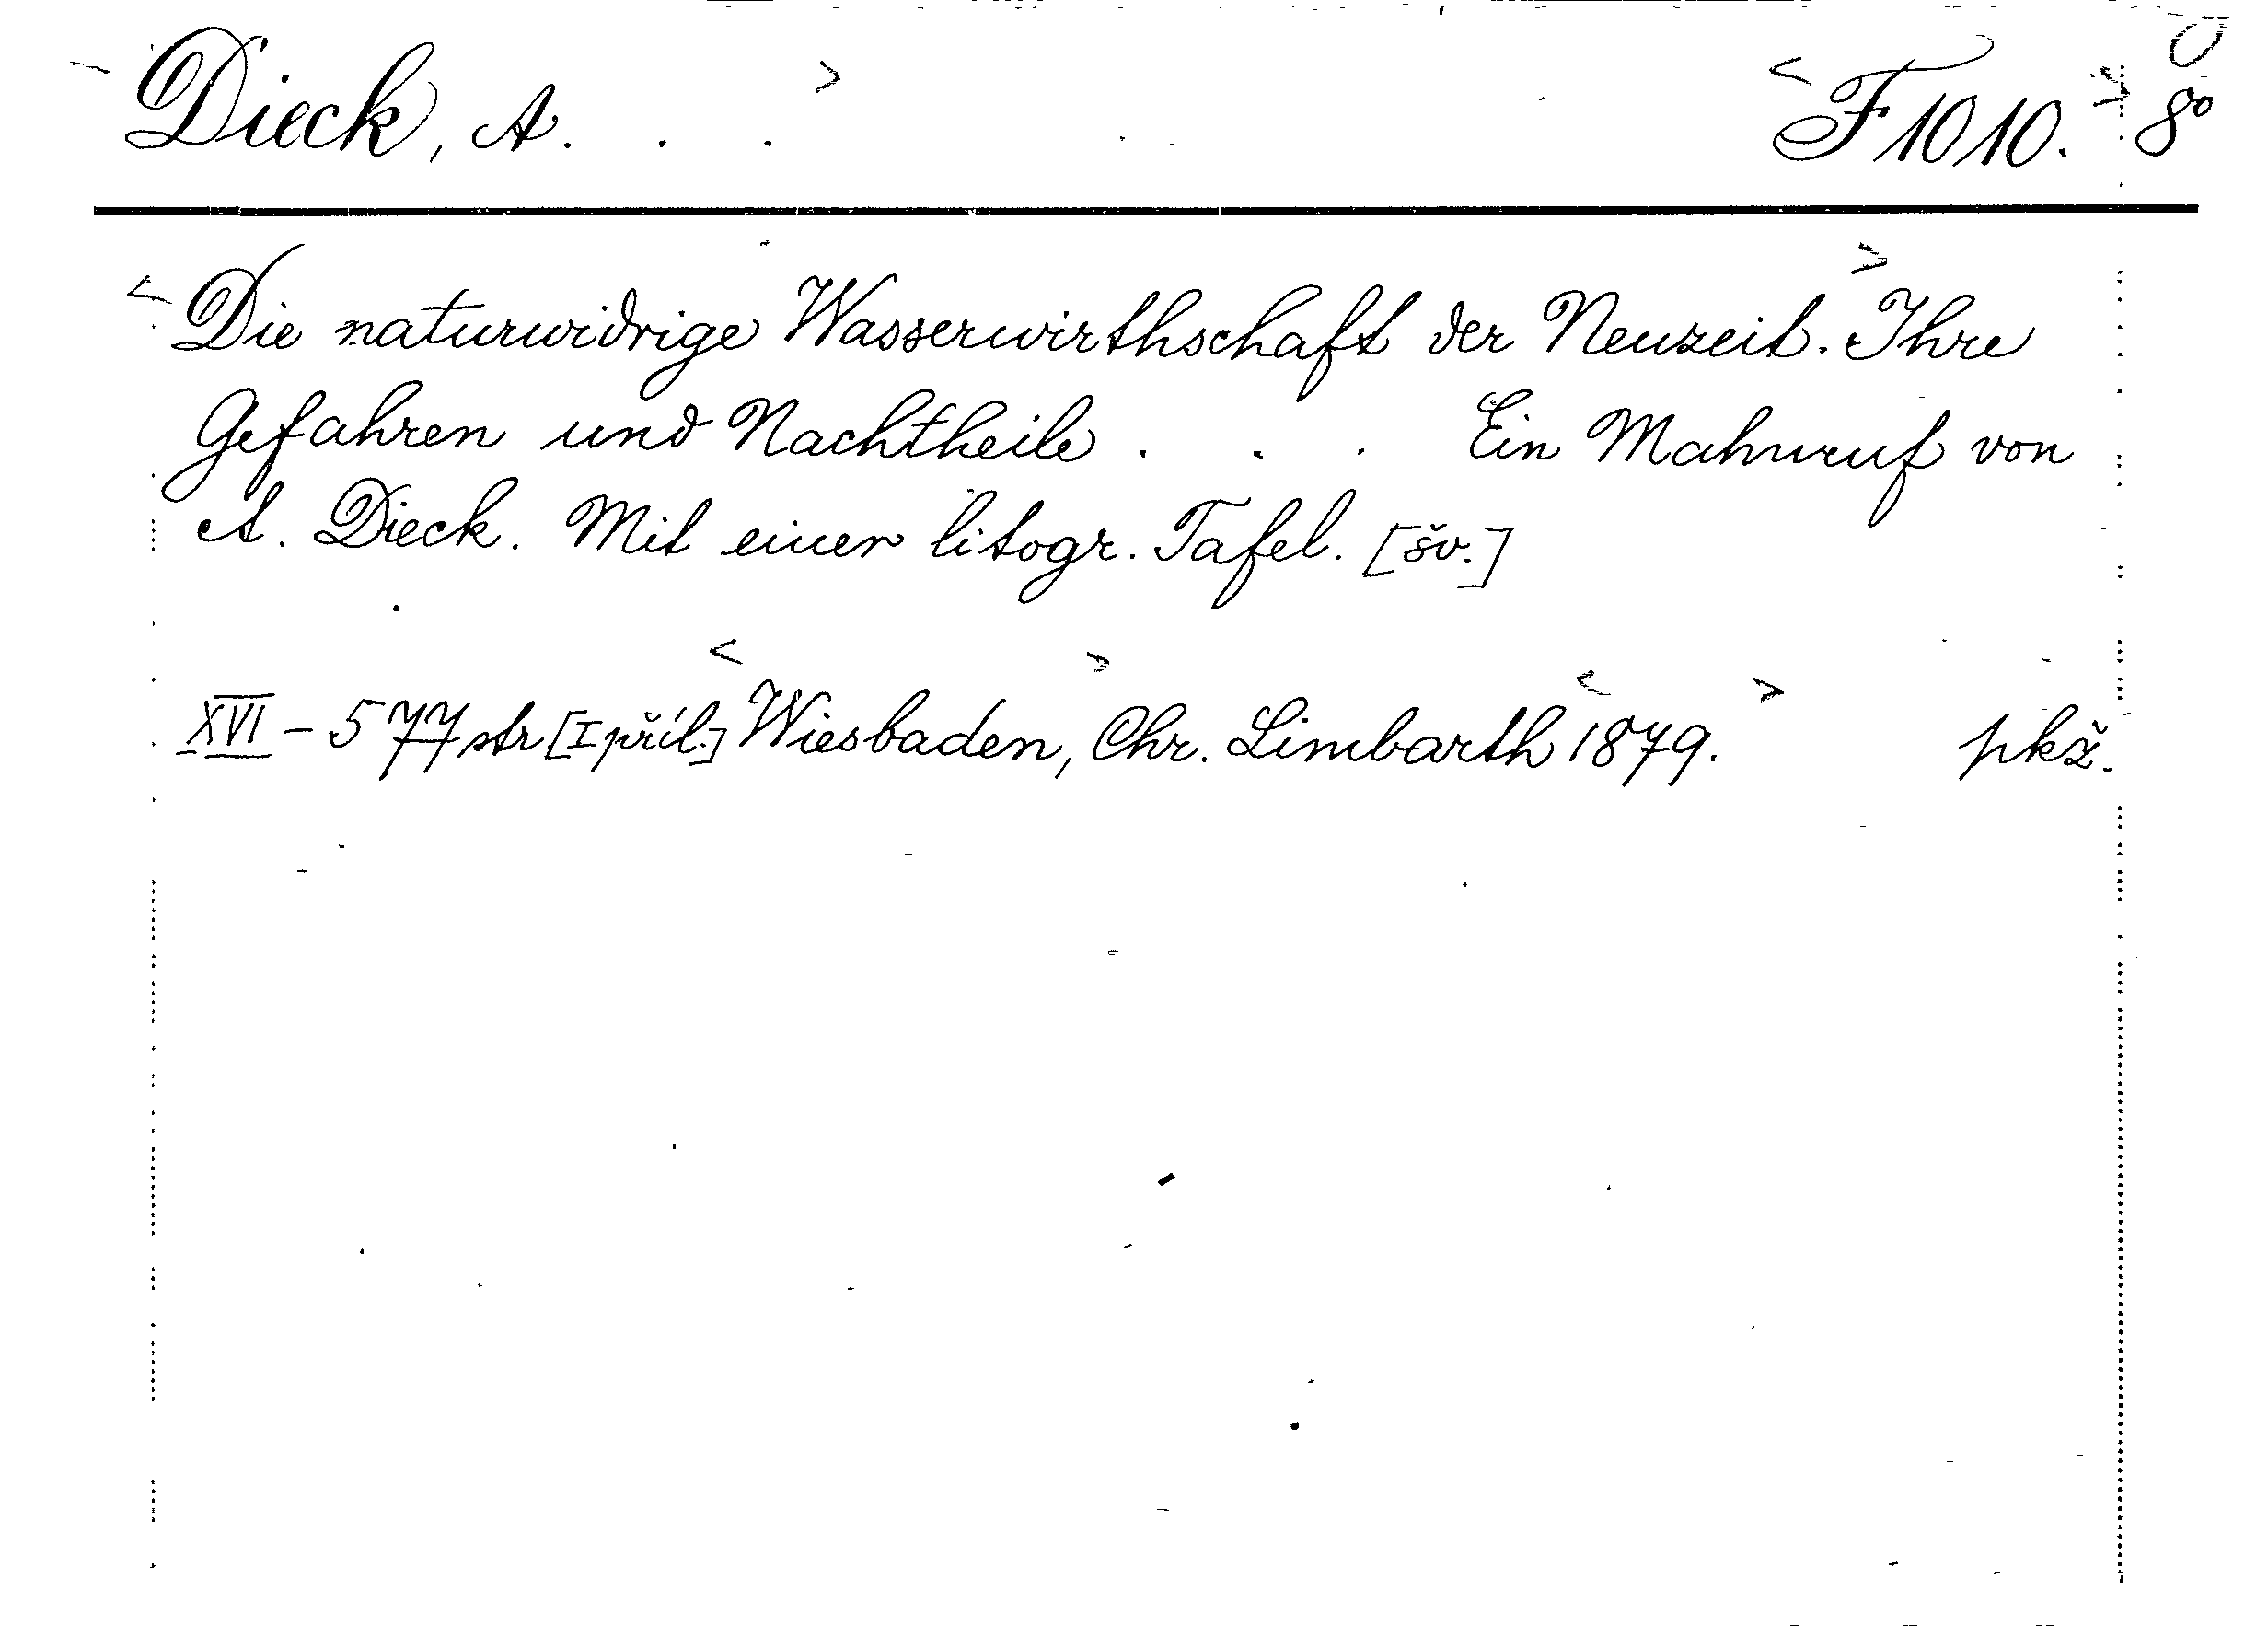 <Dieck, A. . .> <F 1010.> 8°
<Die naturwidrige Wasserwirthschaft der Neuzeit.> Ihre
Gefahren und Nachtheile . . . Ein Mahnruf von
A. Dieck. Mit einer litogr. Tafel. [šv.]
XVI - 577 str [I příl.] <Wiesbaden,> Chr. Limbarth <1879.> pkž.